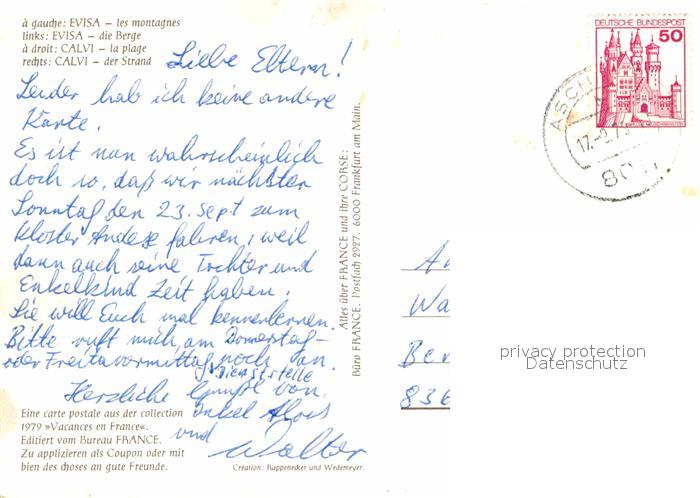 à gauche: EVISA – les montagnes
links: EVISA – die Berge
à droit: CALVI – la plage
rechts: CALVI – der Strand
Liebe Eltern!
Leider hab ich keine andere
Karte.
Es ist nun wahrscheinlich
doch so, daß wir nächsten
Sonntag den 23. Sept zum
Kloster Andexe fahren, weil
dann auch seine Tochter und
Enkelkind Zeit haben.
Sie will Euch mal kennenlernen.
Bitte ruft mich am Donnerstag-
oder Freitagvormittag noch an.
Dienststelle
Herzliche Grüße von
Onkel Alois
und
Walter
Eine carte postale aus der collection
1979 »Vacances en France«.
Editiert vom Bureau FRANCE.
Zu applizieren als Coupon oder mit
bien des choses an gute Freunde.
Création: Rappenecker und Wedemeyer.
Alles über FRANCE und ihre CORSE:
Büro FRANCE, Postfach 2927, 6000 Frankfurt am Main.
DEUTSCHE BUNDESPOST
50
17.-9.7
80
Wa
Ber
836
privacy protection
Datenschutz